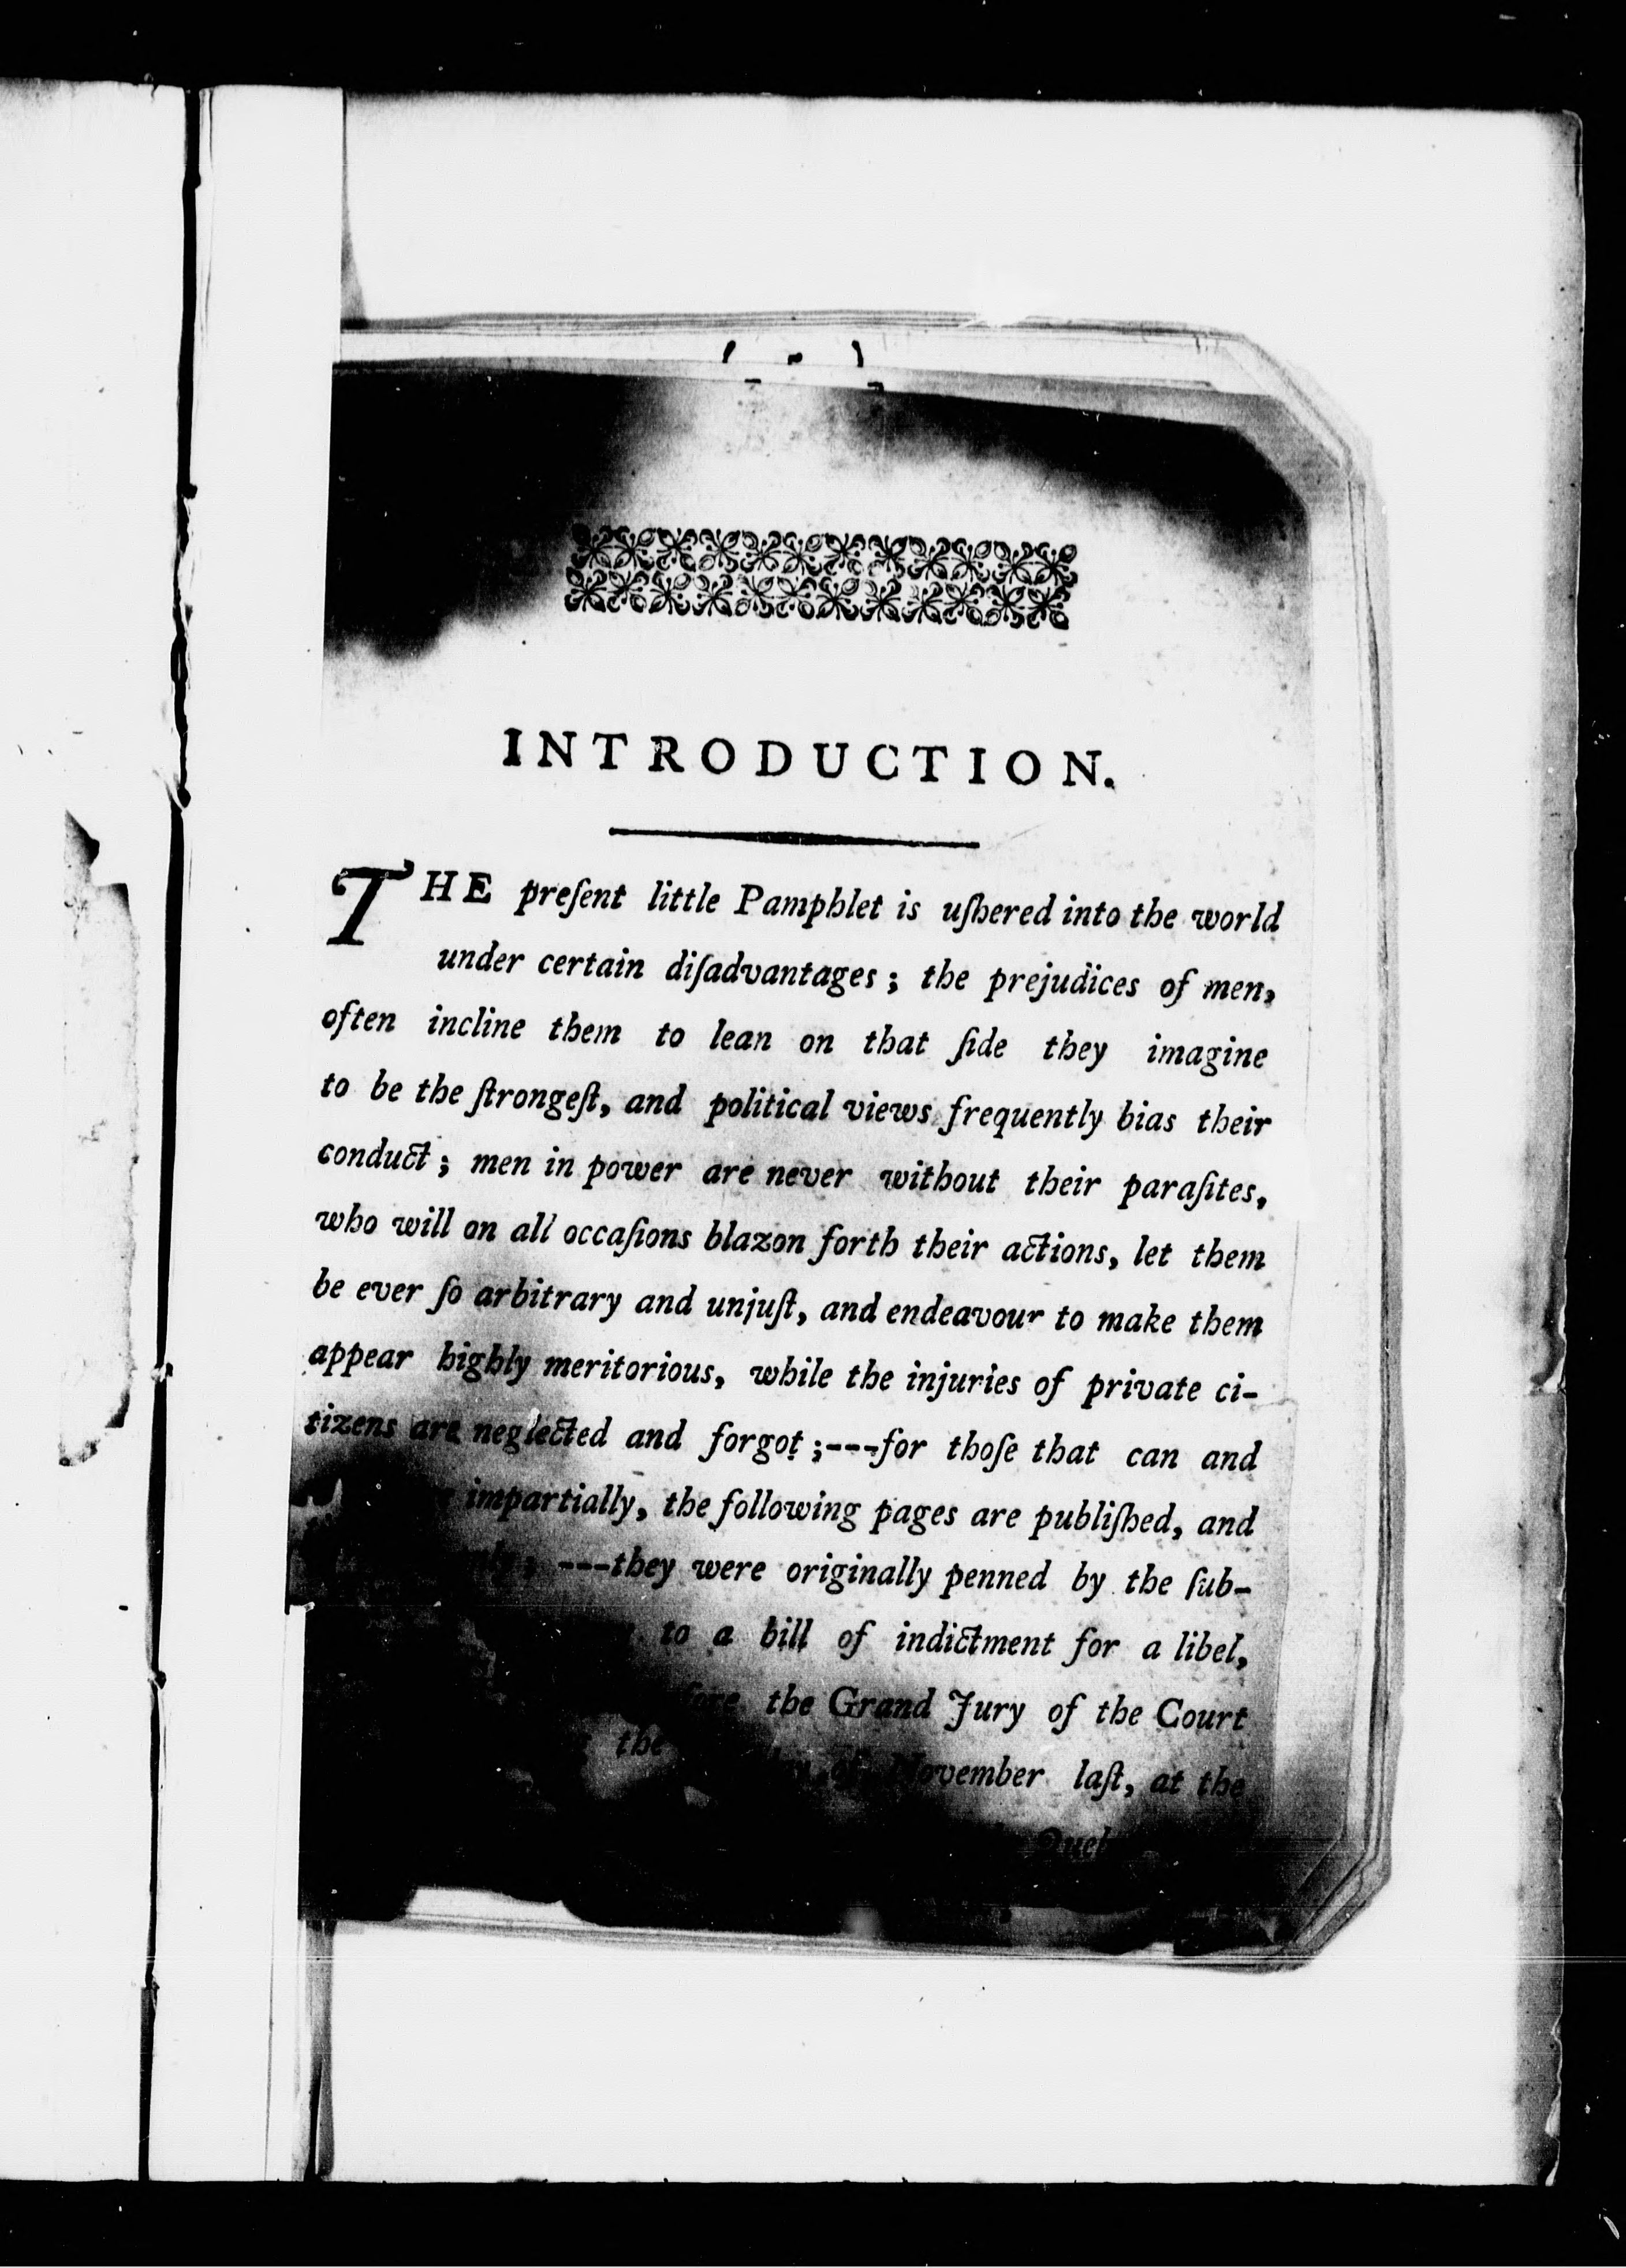 INTRODUCTION.
THE preſent little Pamphlet is uſhered into the world
under certain diſadvantages; the prejudices of men,
often incline them to lean on that ſide they imagine
to be the ſtrongeſt, and political views frequently bias their
conduct; men in power are never without their paraſites,
who will on all occaſions blazon forth their actions, let them
be ever ſo arbitrary and unjuſt, and endeavour to make them
appear highly meritorious, while the injuries of private ci-
tizens are neglected and forgot;---for thoſe that can and
impartially, the following pages are publiſhed, and
---they were originally penned by the ſub-
to a bill of indictment for a libel,
the Grand Jury of the Court
the of November laſt, at the